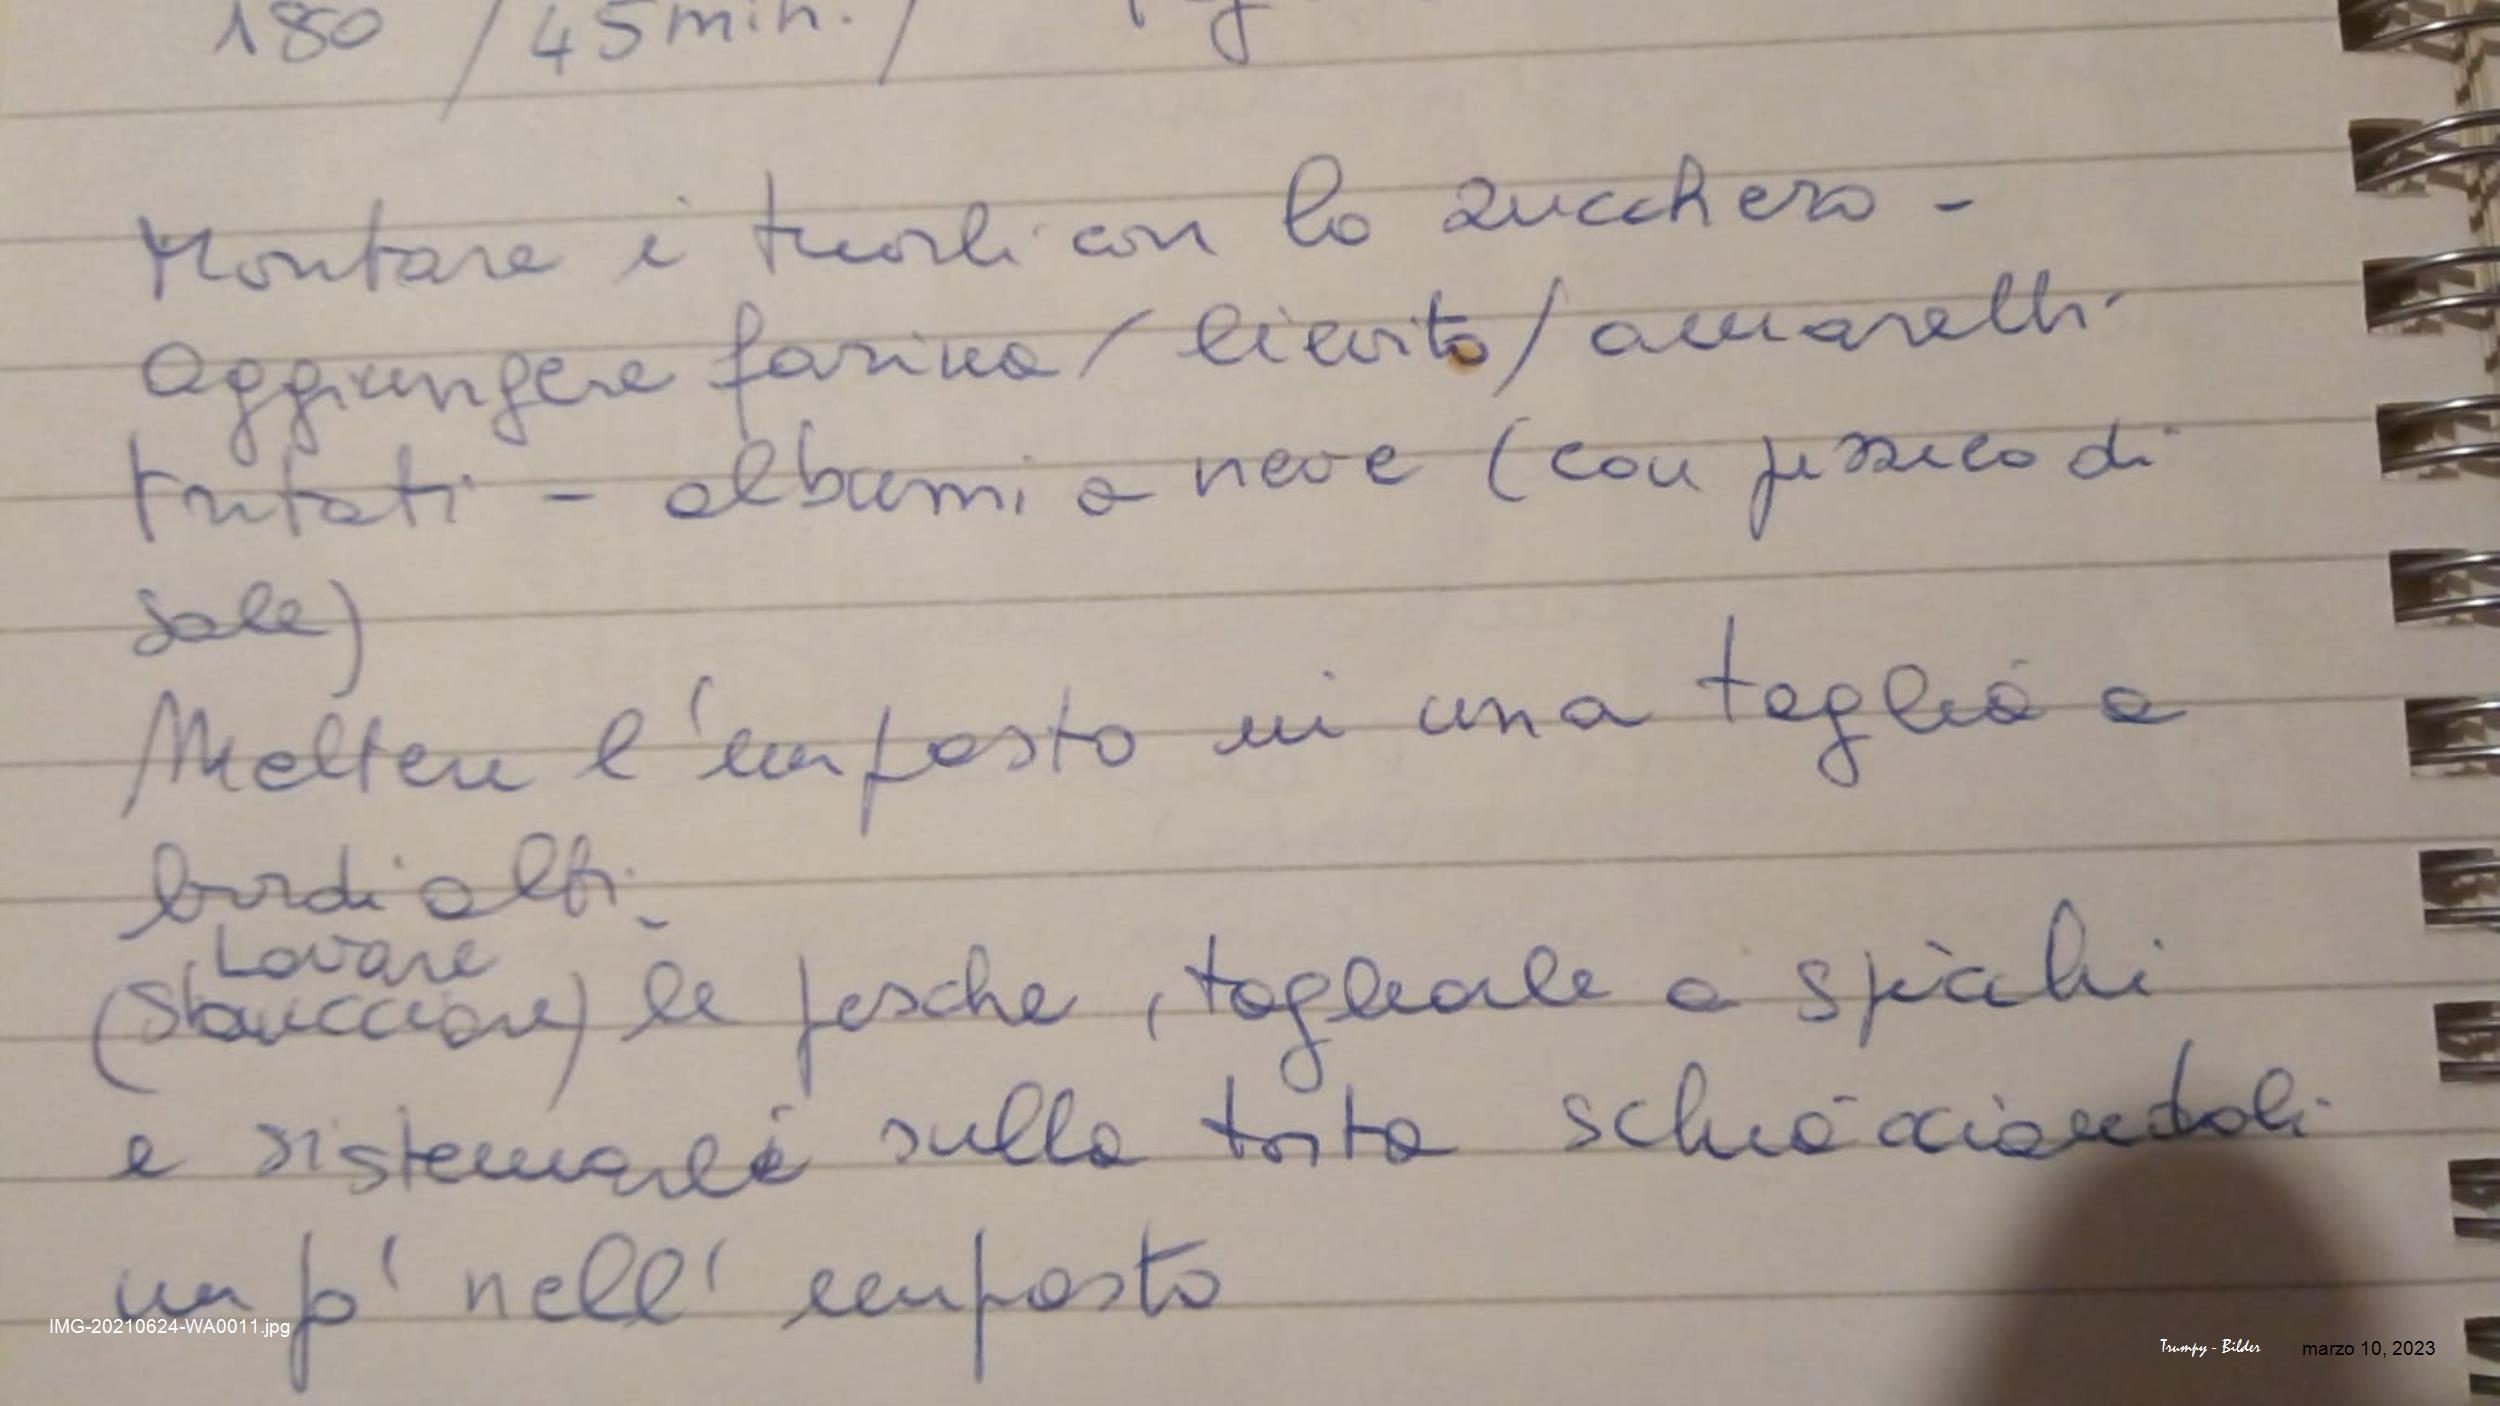 180 / 45 min. /
Montare i tuorli con lo zucchero -
Aggiungere farina / lievito / amaretti
tritati - albumi a neve (con pizzico di
sale)
Mettere l'impasto in una teglia a
bordi alti -
Lavare
(Sbucciare) le pesche, tagliarle a spicchi
e sistemarli sulla torta schiacciandoli
un po' nell'impasto
IMG-20210624-WA0011.jpg
Trumpy - Bilder marzo 10, 2023